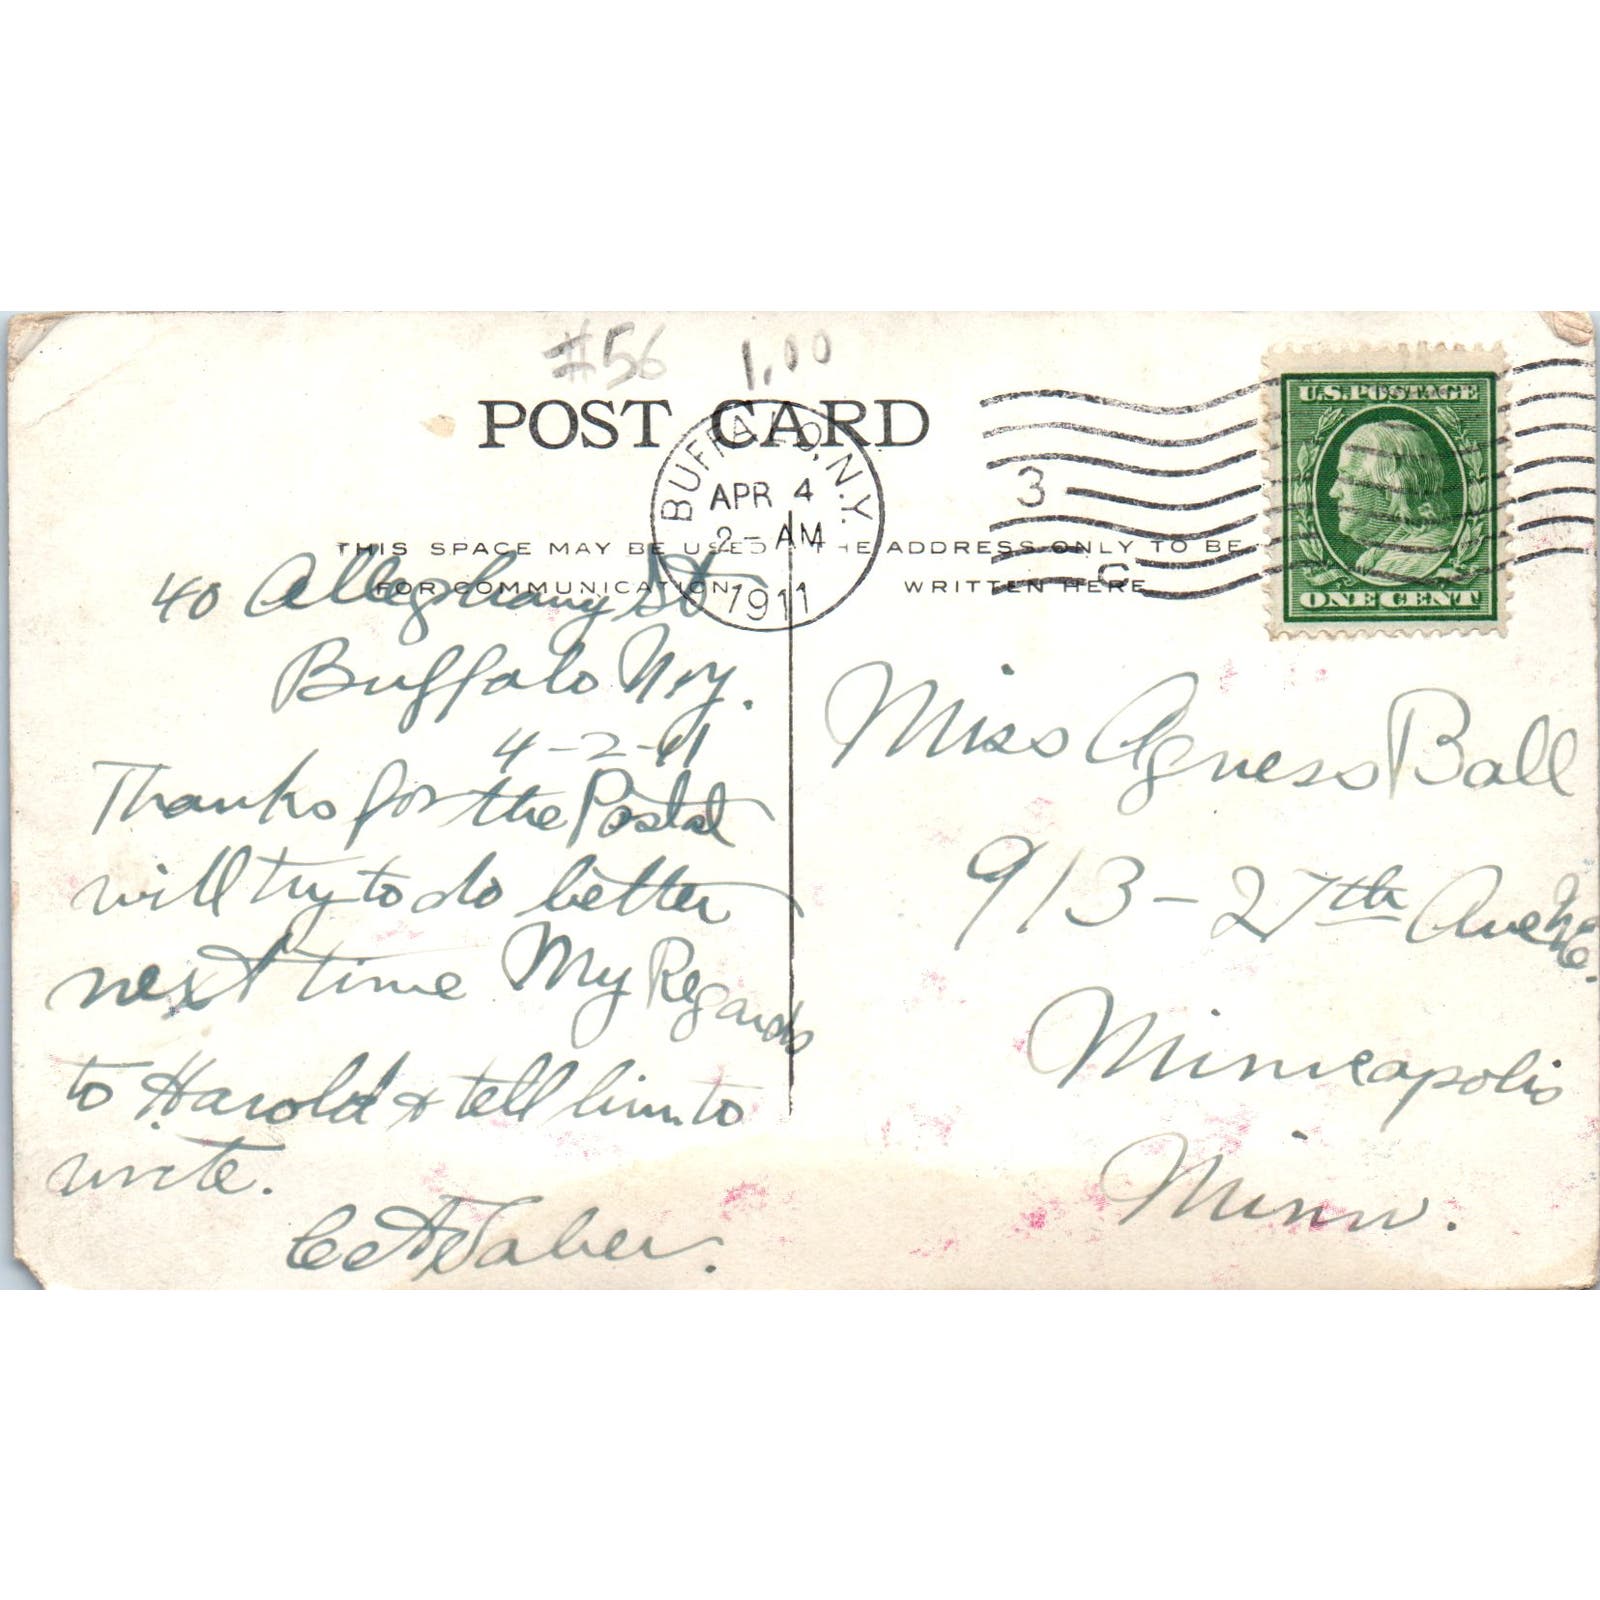 #56 1.00
POST CARD
BUFFALO, N.Y.
APR 4
2 - AM
1911
3
C
U.S. POSTAGE
ONE CENT
THIS SPACE MAY BE USED
FOR COMMUNICATION
THE ADDRESS ONLY TO BE
WRITTEN HERE
40 Alleghany St
Buffalo N.Y.
4-2-11
Thanks for the Postal
will try to do better
next time My Regards
to Harold & tell him to
write.
Taber.
Miss Agness Ball
913 - 27th Ave N.E.
Minneapolis
Minn.